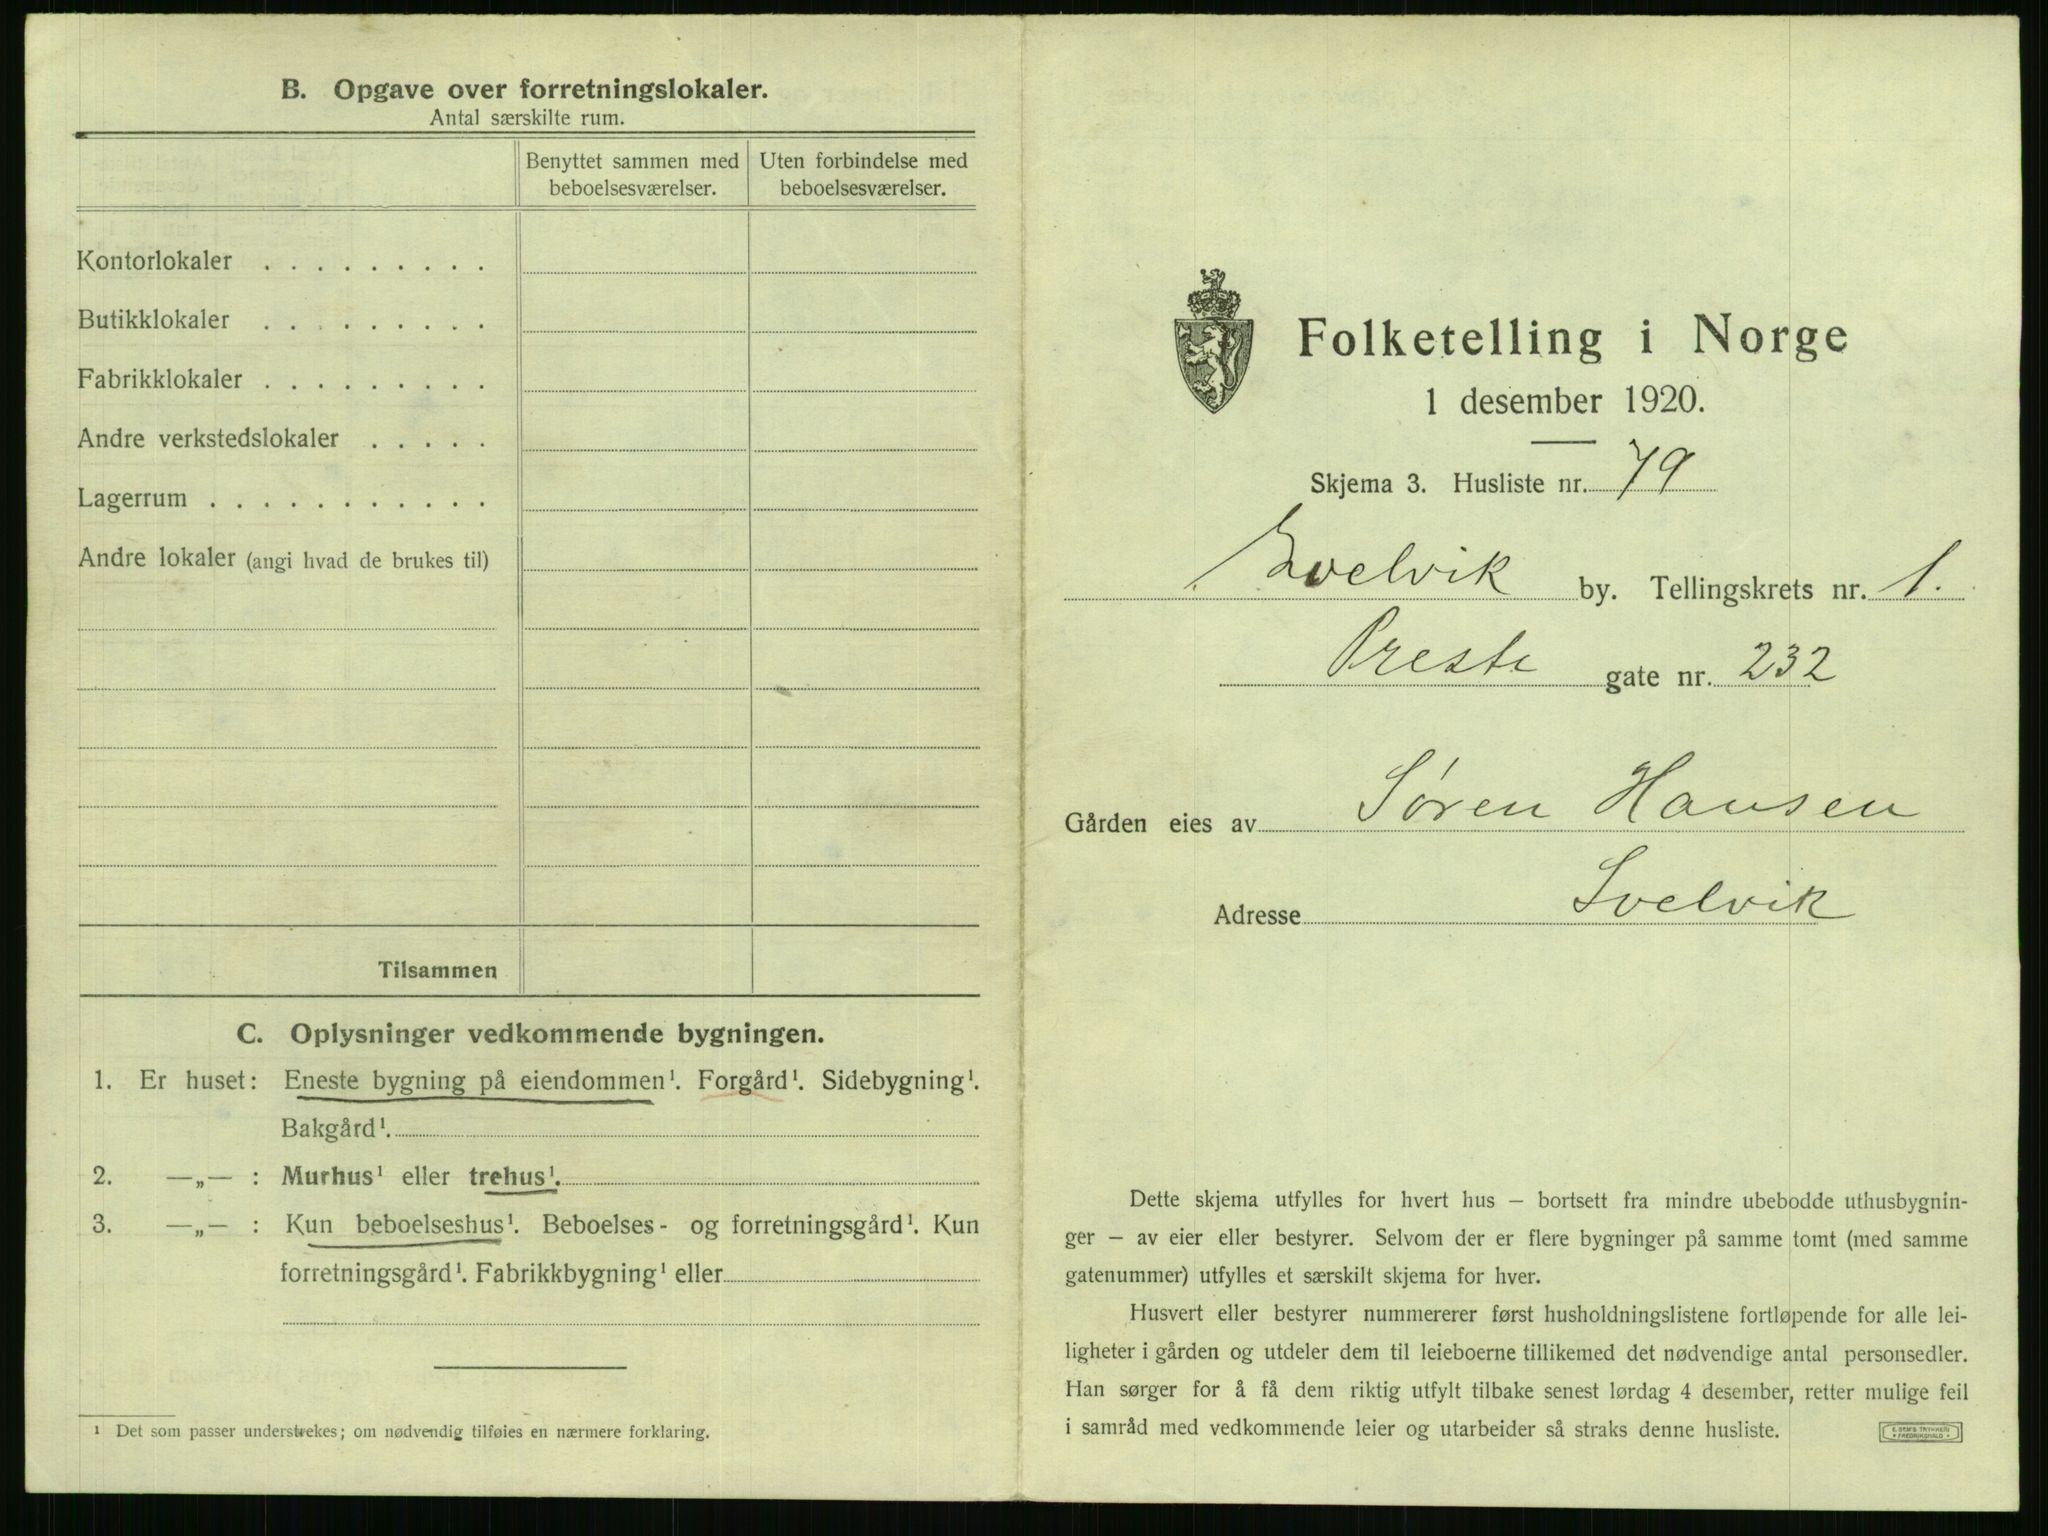 B. Opgave over forretningslokaler.
Antal særskilte rum.
Benyttet sammen med beboelsesværelser.
Uten forbindelse med beboelsesværelser.
Kontorlokaler . . . . . . . . .
Butikklokaler . . . . . . . . .
Fabrikklokaler . . . . . . . . .
Andre verkstedslokaler . . . . .
Lagerrum . . . . . . . . . . .
Andre lokaler (angi hvad de brukes til)
Tilsammen
C. Oplysninger vedkommende bygningen.
1. Er huset: Eneste bygning på eiendommen¹. Forgård¹. Sidebygning¹.
Bakgård¹.
2. —„— : Murhus¹ eller trehus¹.
3. —„— : Kun beboelseshus¹. Beboelses- og forretningsgård¹. Kun
forretningsgård¹. Fabrikkbygning¹ eller
¹ Det som passer understrekes; om nødvendig tilføies en nærmere forklaring.
Folketelling i Norge
1 desember 1920.
Skjema 3. Husliste nr. 79
Svelvik by. Tellingskrets nr. 1.
Preste gate nr. 232
Gården eies av Søren Hansen
Adresse Svelvik
Dette skjema utfylles for hvert hus — bortsett fra mindre ubebodde uthusbygnin-
ger — av eier eller bestyrer. Selvom der er flere bygninger på samme tomt (med samme
gatenummer) utfylles et særskilt skjema for hver.
Husvert eller bestyrer nummererer først husholdningslistene fortløpende for alle lei-
ligheter i gården og utdeler dem til leieboerne tillikemed det nødvendige antal personsedler.
Han sørger for å få dem riktig utfylt tilbake senest lørdag 4 desember, retter mulige feil
i samråd med vedkommende leier og utarbeider så straks denne husliste.